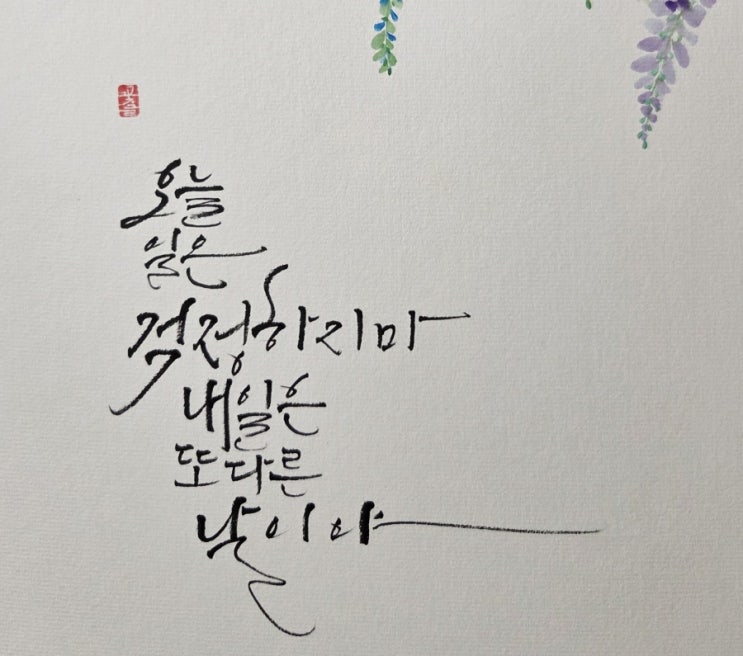 오늘
일은
걱정하지마
내일은
또다른
날이야